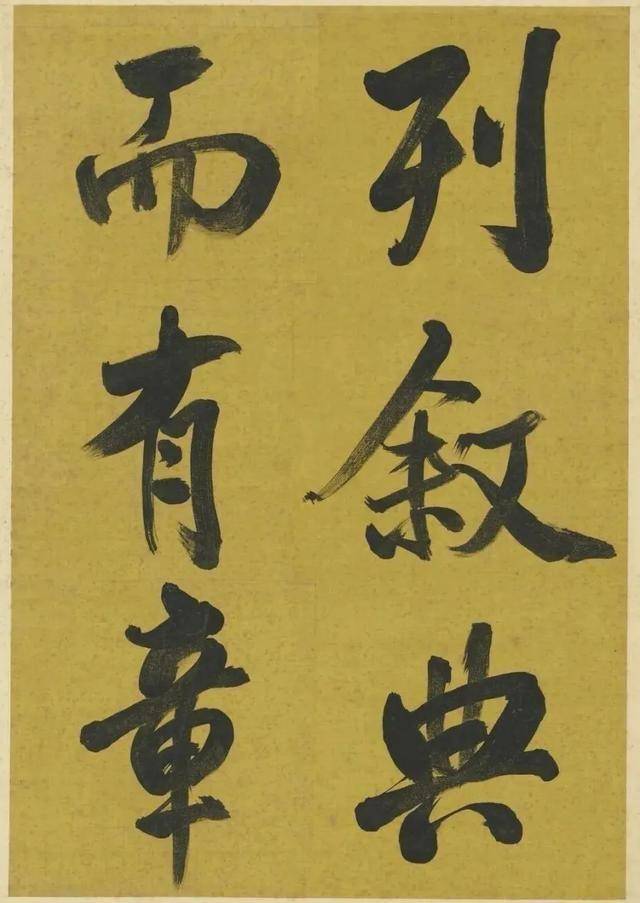 列叙典
而有章